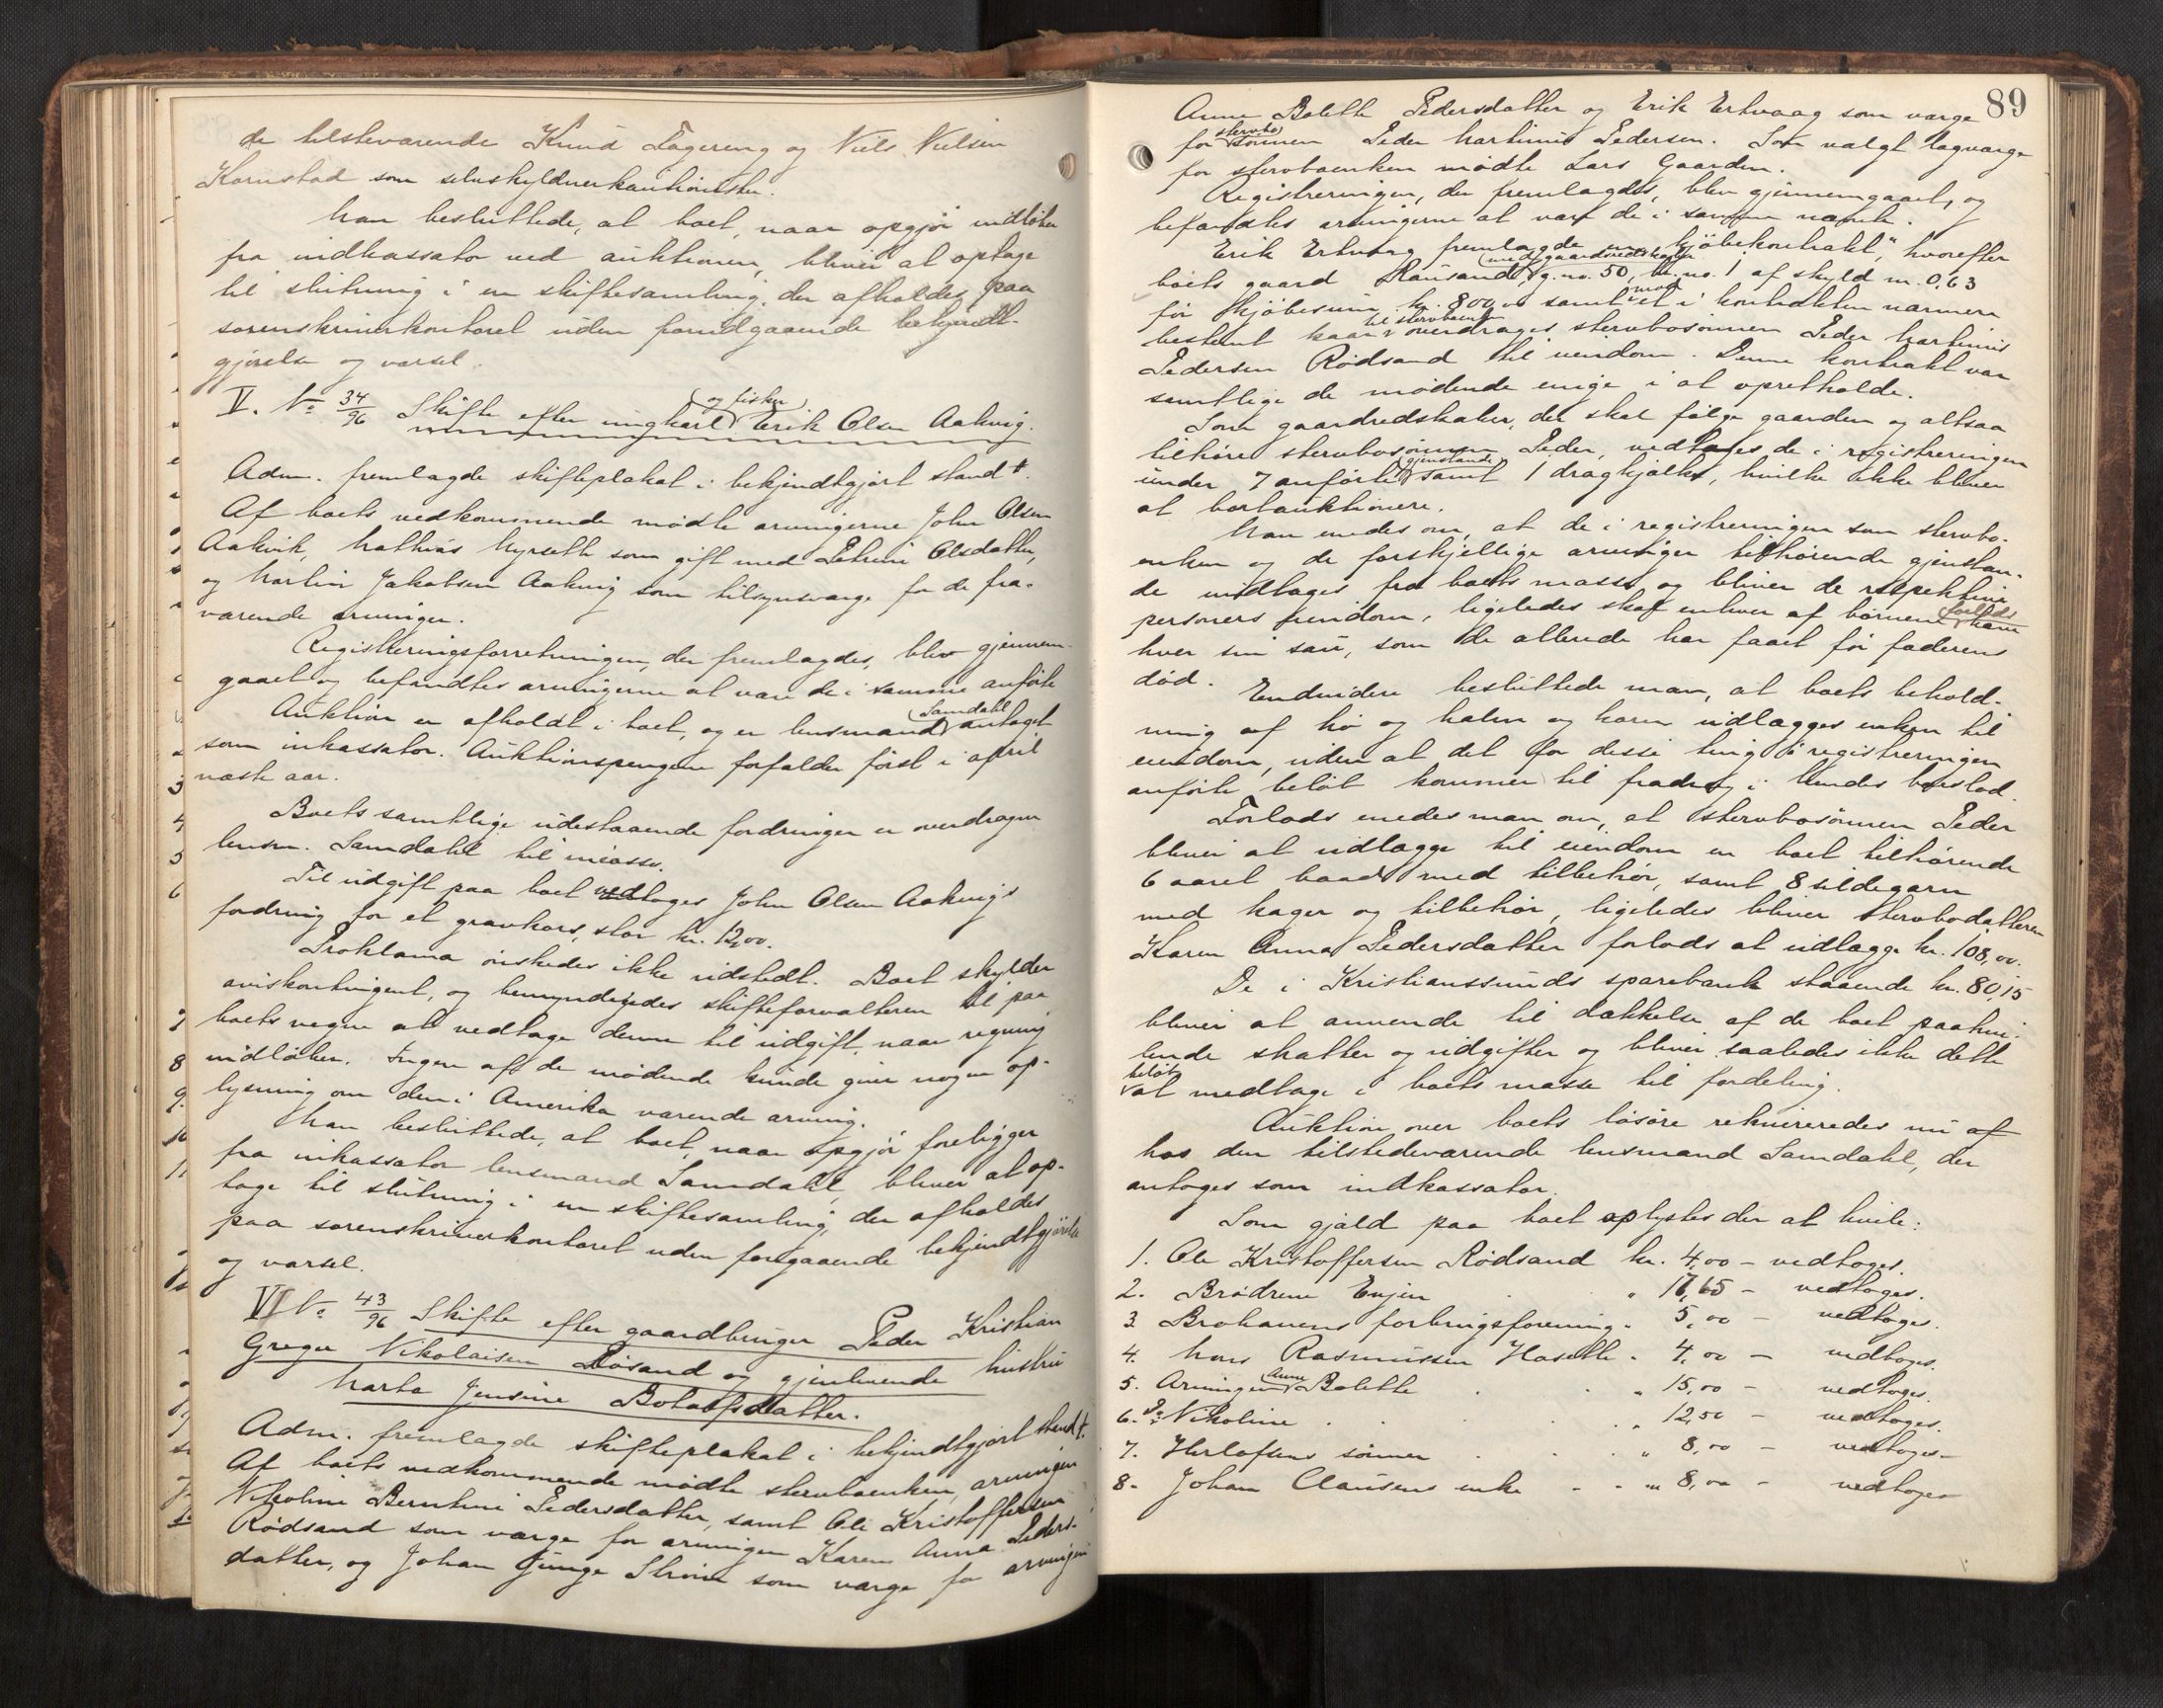 de tilsteværende Knud Fagereng og Niels Nielsen
Kornstad som selvskyldnerkautionister.
Man besluttede, at boet, naar opgjør indløber
fra indkassator ved auktionen, bliver at optage
til slutning i en skiftesamling, der afholdes paa
sorenskriverkontoret uden forudgaaende bekjendt-
gjørelse og varsel.
V. No 34/96 Skifte efter ungkarl (og fisker) Erik Olsen Aakvig.
Adm. fremlagde skifteplakat i bekjendtgjort stand t.
Af boets vedkommende mødte arvingerne John Olsen
Aakvik, Mathias Myrseth som gift med Petrine Olsdatter,
og Martin Jakobsen Aakvig som tilsynsværge for de fra-
værende arvinger.
Registreringsforretningen, der fremlagdes, blev gjennem-
gaaet og befandtes arvingerne at være de i samme anførte
Auktion er afholdt i boet, og er lensmand (Samdahl) antaget
som inkassator. Auktionspengene forfalder først i april
næste aar.
Boets samtlige udestaaende fordringer er overdragen
lensm. Samdahl til incasso.
Til udgift paa boet vedtoges John Olsen Aakvigs
fordring for et gravkors, stor kr. 12,00.
Proklama ønskedes ikke udstedt. Boet skylder
aviskontingent, og bemyndigedes skifteforvalteren til paa
boets vegne at vedtage denne til udgift, naar regning
indløber. Ingen af de mødende kunde give nogen op-
lysning om den i Amerika værende arving.
Man besluttede, at boet, naar opgjør foreligger
fra inkassator lensmand Samdahl, bliver at op-
tage til slutning i en skiftesamling, der afholdes
paa sorenskriverkontoret uden forgaaende bekjendtgjørelse
og varsel.
VI No 43/96 Skifte efter gaardbruger Peder Kristian
Greger Nikolaisen Løsand og gjenlevende hustru
Marta Jensine Botolfsdatter.
Adm. fremlagde skifteplakat i bekjendtgjort stand t.
Af boets vedkommende mødte stervboenken, arvingen
Nikoline Berntine Pedersdatter, samt Ole Kristoffersen
Rødsand som værge for arvingen Karen Anna Peders-
datter, og Johan Gunge Strøm som værge for arvingen
3
4
5
6
7
8
9.
10
11
89
Anne Bolette Pedersdatter og Erik Ertvaag som værge
for (stervbo)sønnen Peder Martinus Pedersen. Som valgt lagværge
for stervboenken mødte Lars Gaarden.
Registreringen, der fremlagdes, blev gjennemgaaet, og
befandtes arvingerne at være de i samme nævnte.
Erik Ertvaag fremlagde en „kjøbekontrakt", hvorefter
boets gaard Rausand (med gaardsredskaber), g.no. 50, br.no. 1 af skyld m. 0,63
for kjøbesum kr. 800,00 samt mod et i kontrakten nærmere
bestemt kaar til stervboenken overdrages stervbosønnen Peder Martinus
Pedersen Rødsand til eiendom. Denne kontrakt var
samtlige de mødende enige i at opretholde.
Som gaardredskaber, der skal følge gaarden og altsaa
tilhøre stervbosønnen Peder, vedtoges de i registreringen
under 7 anførte (gjenstande) samt 1 dragkjælke, hvilke ikke bliver
at bortauktionere.
Man enedes om, at de i registreringen som stervbo-
enken og de forskjellige arvinger tilhørende gjenstan-
de undtages fra boets masse og bliver de respektive
personers eiendom, ligeledes skal enhver af børnene (forlods) have
hver sin sau, som de allerede har faaet før faderens
død.
Endvidere besluttede man, at boets behold-
ning af hø og halm og korn udlægges enken til
eiendom, uden at det for disse ting i registreringen
anførte beløb kommer til fradrag i hendes boeslod.
Forlods enedes man om, at stervbosønnen Peder
bliver at udlægge til eiendom en boet tilhørende
6 aaret baad med tilbehør, samt 8 sildegarn
med kager og tilbehør, ligeledes bliver stervbodatteren
Karen Anna Pedersdatter forlods at udlægge kr. 108,00.
De i Kristianssunds sparebank staaende kr. 80,15
bliver at anvende til dækkelse af de boet paahvi-
lende skatter og udgifter og bliver saaledes ikke dette
beløb at medtage i boets masse til fordeling.
Auktion over boets løsøre rekvireredes nu af
hos den tilstedeværende lensmand Samdahl, der
antoges som indkassator.
Som gjæld paa boet oplystes der at hvile:
1. Ole Kristoffersen Rødsand kr. 4,00 – vedtoges.
2. Brødrene Enjen „ 17,65 – vedtoges.
3. Brohavens forbrugsforening „ 5,00 – vedtoges.
4. Hans Rasmussen Haseth „ 4,00 – vedtoges.
5. Arvingen (Anne) Bolette „ 15,00 – vedtoges.
6. Do Nikoline „ 12,50 – vedtoges.
7. Herlofsens sønner „ 8,00 – vedtoges –
8. Johan Clausens enke „ 8,00 – vedtoges